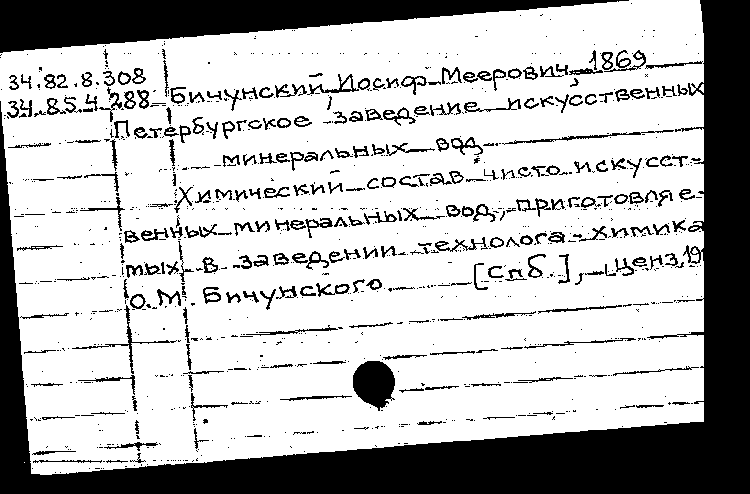 34.82.8.308
34.85.4.288 Бичунский, Иосиф Меерович, 1869
Петербургское заведение искусственных
минеральных вод
Химический состав чисто искусст-
венных минеральных вод, приготовляе-
мых в заведении технолога-химика
О.М. Бичунского [Спб.], ценз.